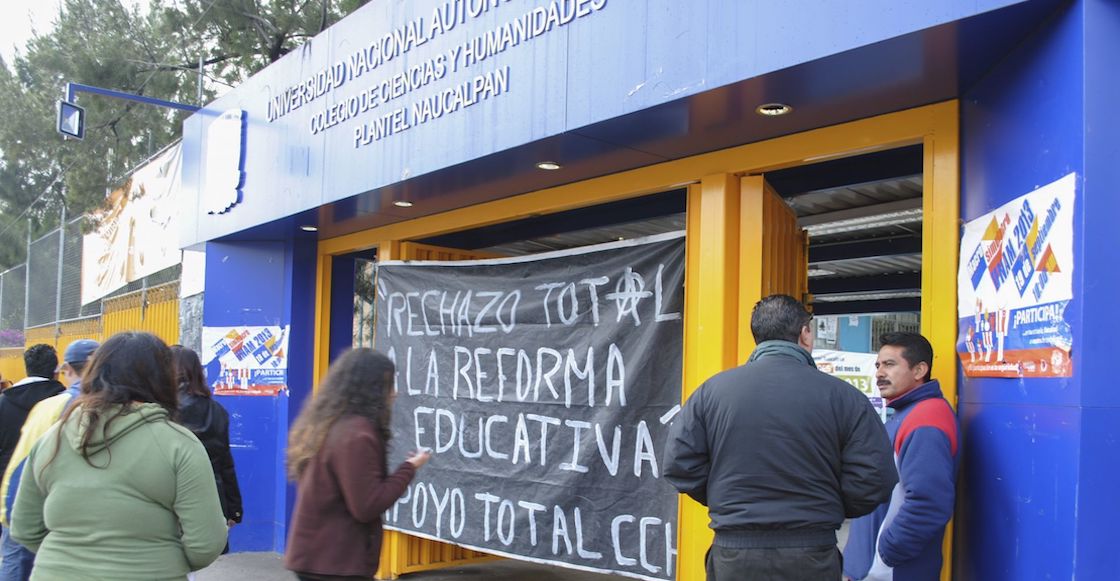 UNIVERSIDAD NACIONAL AUTÓN
COLEGIO DE CIENCIAS Y HUMANIDADES
PLANTEL NAUCALPAN
"RECHAZO TOTAL
A LA REFORMA
EDUCATIVA"
APOYO TOTAL CCH
2013
¡PARTICIPA!